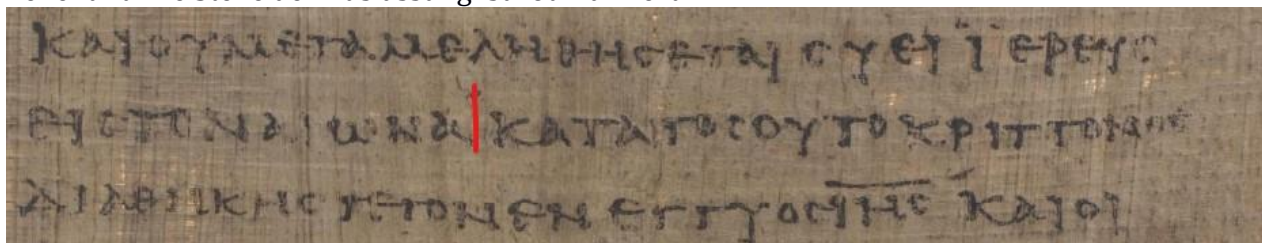 ΚΑΙΟΥΜΕΤΑΜΕΛΗΘΗϹΕΤΑΙϹΥΕΙΪΕΡΕΥϹ
ΕΙϹΤΟΝΑΙΩΝΑΚΑΤΑΤΟϹΟΥΤΟΚΡΙΤΤΟΝΟϹ
ΔΙΑΘΗΚΗϹΓΕΓΟΝΕΝΕΓΓΥΟϹΙ̅Η̅Ϲ̅ΚΑΙΟΙ